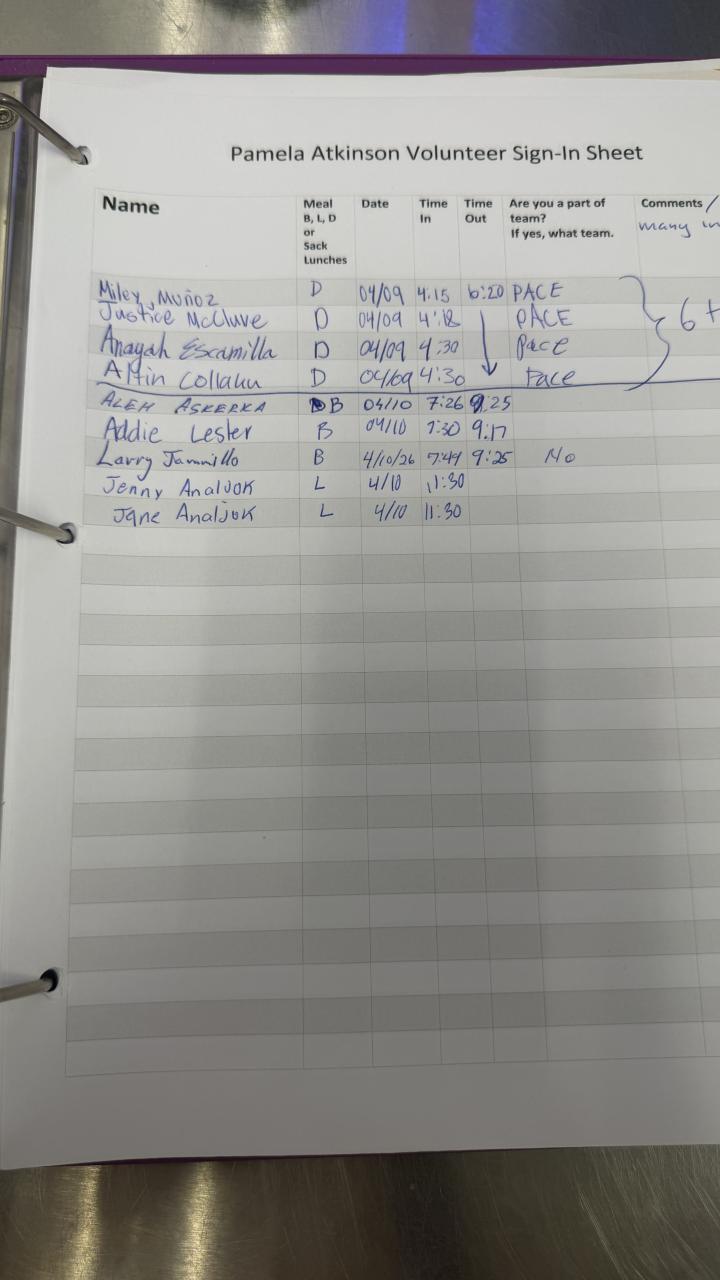 Pamela Atkinson Volunteer Sign-In Sheet
Name Meal B, L, D or Sack Lunches Date Time In Time Out Are you a part of team? If yes, what team. Comments / many in
Miley Muñoz D 04/09 4:15 6:20 PACE
Justice McCluve D 04/09 4:18 PACE
Anayah Escamilla D 04/09 4:30 Pace
Altin Collaku D 04/09 4:30 Pace
6+
ALEH ASKERKA B 04/10 7:26 9:25
Addie Lester B 04/10 7:30 9:17
Larry Jammillo B 4/10/26 7:49 9:25 No
Jenny Analjok L 4/10 11:30
Jane Analjok L 4/10 11:30